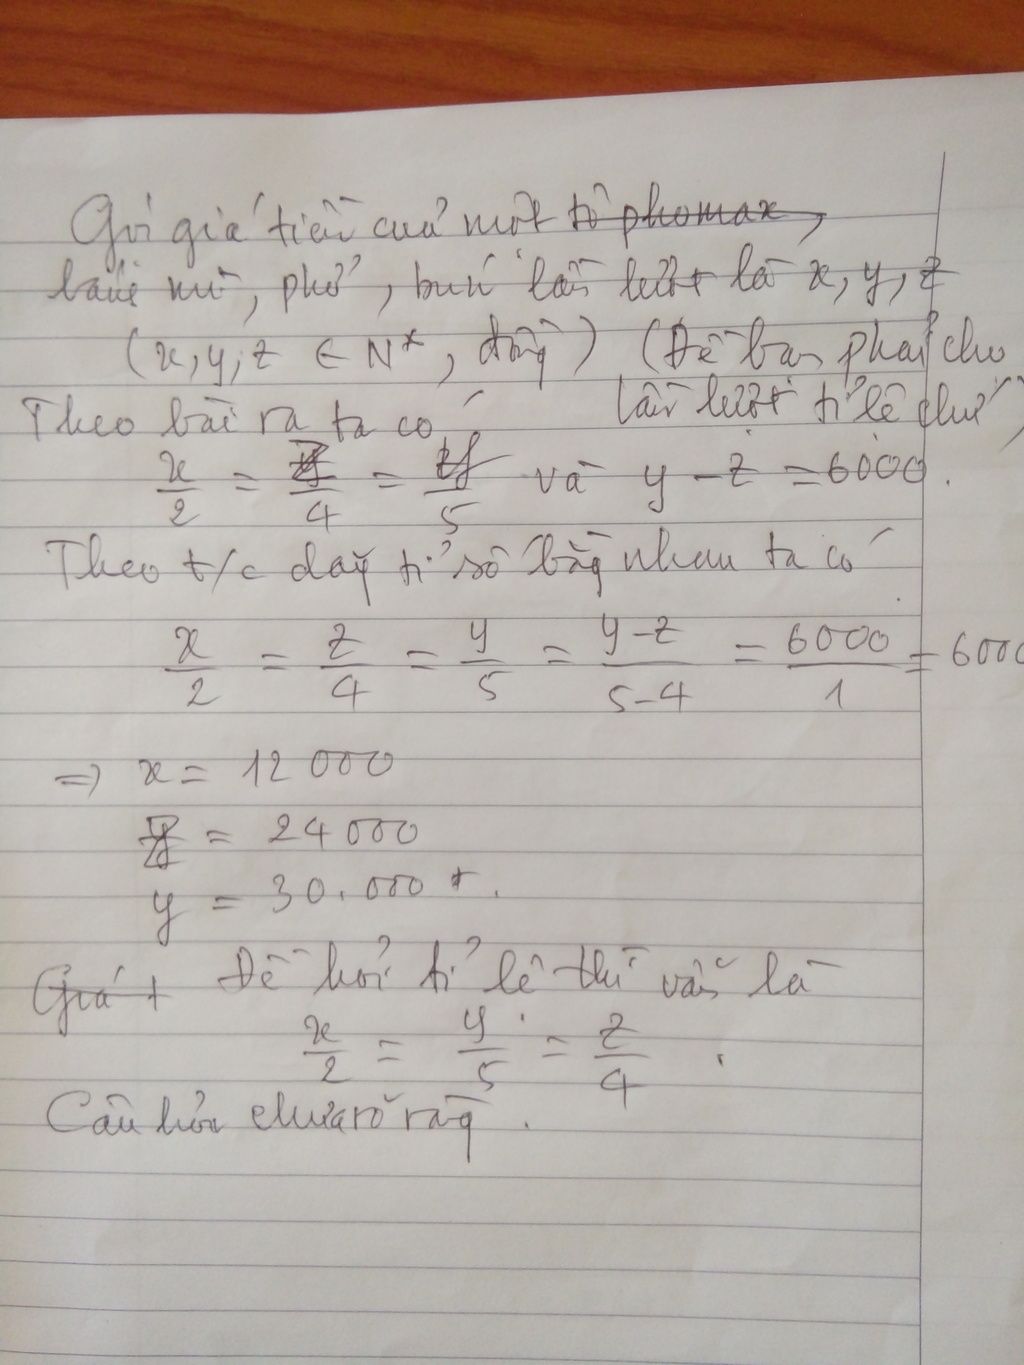 Gọi giá tiền của một tô phomax,
bánh mì, phở, bún lần lượt là x, y, z
(x, y, z ∈ N*, đồng) (Đề bạn phải cho
Theo bài ra ta có lần lượt tỉ lệ chứ)
x/2 = z/4 = y/5 và y - z = 6000.
Theo t/c dãy tỉ số bằng nhau ta có
x/2 = z/4 = y/5 = y-z/5-4 = 6000/1 = 6000
=> x = 12 000
z = 24 000
y = 30.000 +.
Giá + Đề hỏi tỉ lệ thì vẫn là
x/2 = y/5 = z/4.
Câu hỏi chưa rõ ràng.